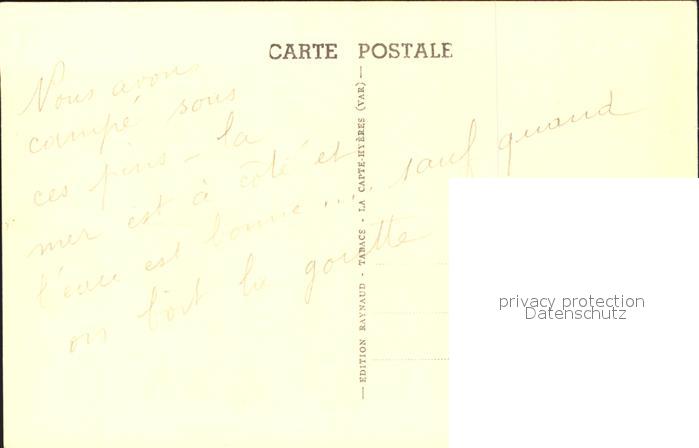 CARTE POSTALE
Nous avons
campé sous
ces pins - la
mer est à côté et
l'eau est bonne .... sauf quand
on boit la goutte
EDITION RAYNAUD - TABACS - LA CAPTE-HYÈRES (VAR)
privacy protection
Datenschutz